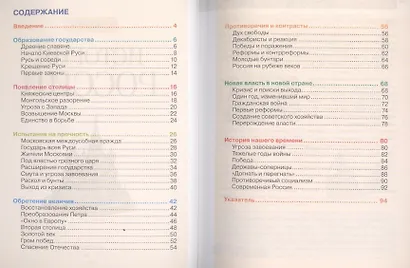 СОДЕРЖАНИЕ
Введение 4
Образование государства 6
Древние славяне 6
Начало Киевской Руси 8
Русь и соседи 10
Крещение Руси 12
Первые законы 14
Появление столицы 16
Княжеские центры 16
Монгольское разорение 18
Угроза с Запада 20
Возвышение Москвы 22
Единство в борьбе 24
Испытание на прочность 26
Московская междоусобная вражда 26
Государь всея Руси 28
Жители Московии 30
Под властью грозного царя 32
Расширение государства 34
Смута и угроза завоевания 36
Раскол и бунты 38
Выход из кризиса 40
Обретение величия 42
Восстановление хозяйства 42
Преобразования Петра 44
«Окно в Европу» 46
Вторая столица 48
Золотой век 50
Гром побед 52
Спасение Отечества 54
Противоречия и контрасты 56
Дух свободы 56
Декабристы и реакция 58
Победы и поражения 60
Реформы и контрреформы 62
Молодые бунтари 64
Россия на рубеже веков 66
Новая власть в новой стране 68
Кризис и поиски выхода 68
Один год, изменивший мир 70
Гражданская война 72
Первые реформы 74
Создание советского хозяйства 76
Перерождение власти 78
История нашего времени 80
Угроза завоевания 80
Тяжелые годы войны 82
Победа 84
Державы-соперницы 86
«Догнать и перегнать» 88
Противоречивый социализм 90
Современная Россия 92
Указатель 94